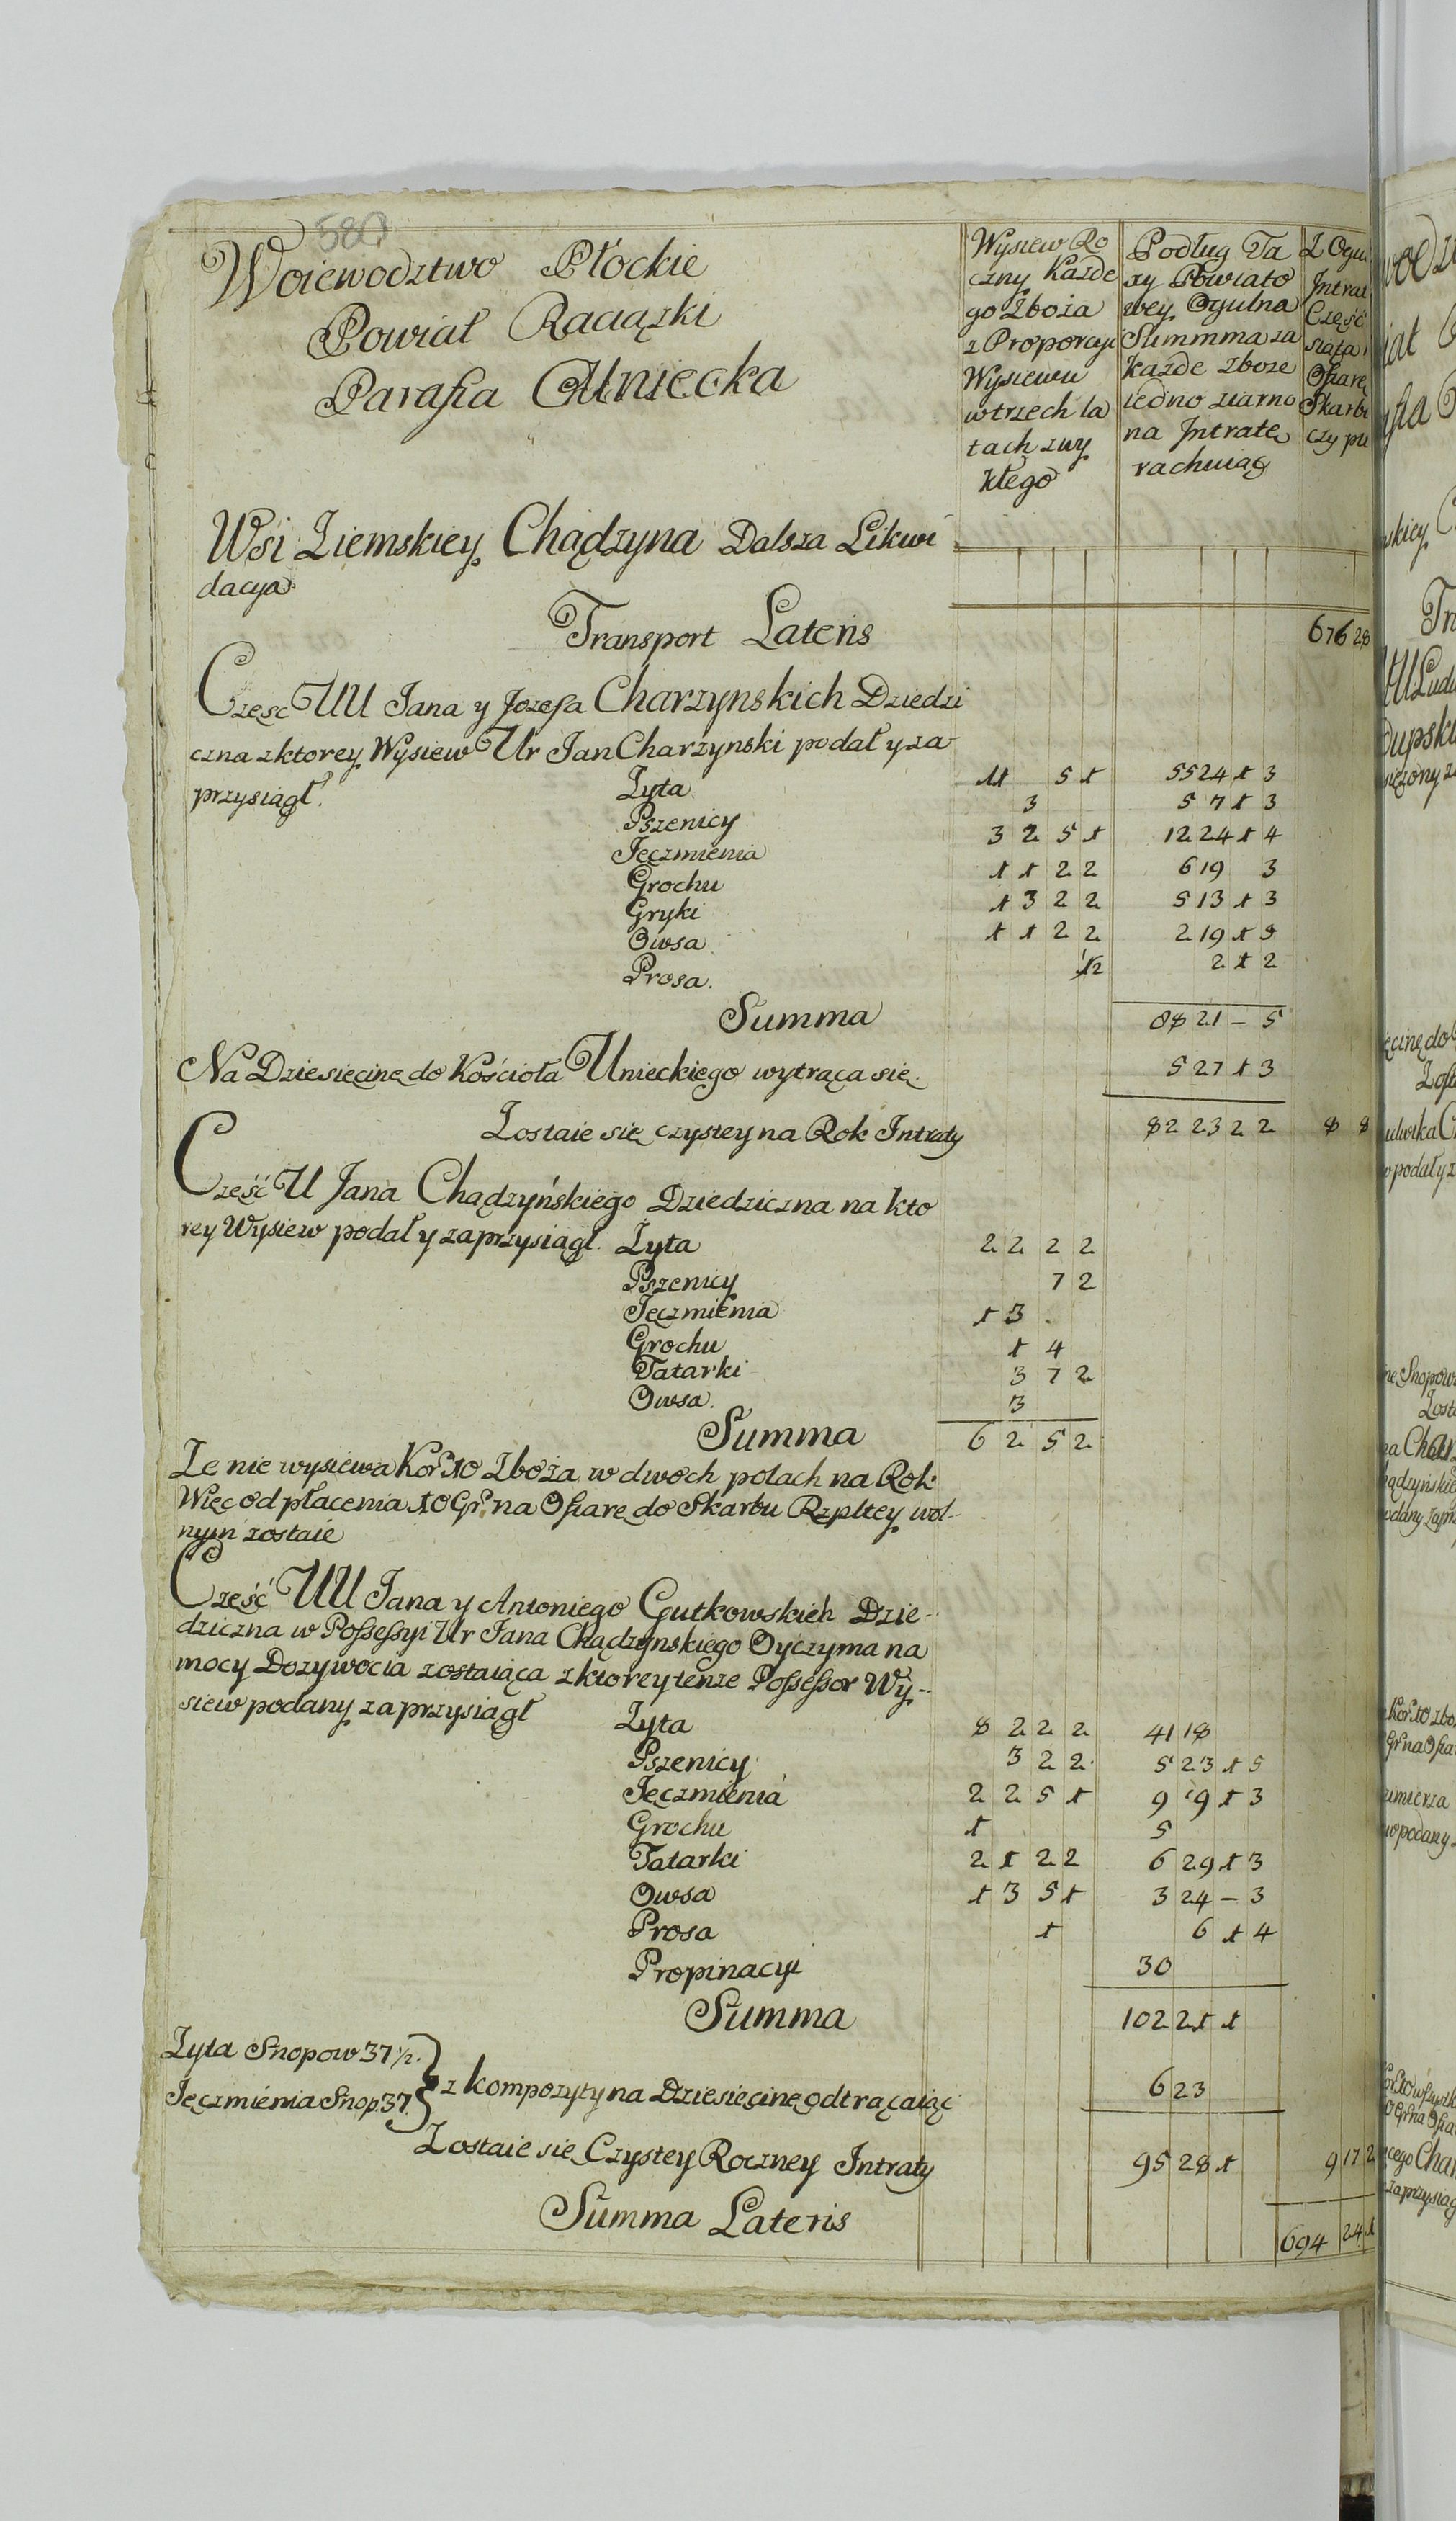 580
Woiewodztwo Płockie
Powiat Raciązki
Parafia Uniecka
Wysiew Ro
czny Kazde
go Zboza
z Proporcyi
Wysiewu
w trzech la
tach zwy
kłego
Podług Ta
xy Powiato
wey Ogulna
Summma za
kazde zboze
iedno ziarno
na Intratę
rachuiąc
Z Ogul
Intrat
Część
siąta
Ofiarę
Skarbu
czy
Wsi Ziemskiey Chądzyna Dalsza Likwi
dacya
Transport Lateris 676 28
Częsc UU Jana y Jozefa Charzynskich Dziedzi
czna z ktorey Wysiew Ur Jan Charzynski podał y za
przysiągł.
Zyta 11 5 1 55 24 1 3
Pszenicy 3 5 7 1 3
Jęczmienia 3 2 5 1 12 24 1 4
Grochu 1 1 2 2 6 19 3
Gryki 1 3 2 2 5 13 1 3
Owsa 1 1 2 2 2 19 1 3
Prosa. 1/2 2 1 2
Summa 88 21 – 5
Na Dziesięcinę do Kościoła Unieckiego wytrąca się 5 27 1 3
Zostaie się czystey na Rok Intraty 82 23 2 2 8 8
Część U Jana Chądzyńskiego Dziedziczna na kto
rey Wysiew podał y zaprzysiągł. Żyta 2 2 2 2
Pszenicy 7 2
Jęczmienia 1 3
Grochu 1 4
Tatarki 3 7 2
Owsa. 3
Summa 6 2 5 2
Ze nie wysiewa Kor. 10 Zboża w dwoch polach na Rok
Więc od płacenia 10 Gr. na Ofiarę do Skarbu Rzpltey wol-
nym zostaie
Część UU Jana y Antoniego Gutkowskich Dzie-
dziczna w Possessyi Ur Jana Chądzynskiego Oyczyma na
mocy Dozywocia zostaiąca z ktorey tenze Possessor Wy-
siew podany zaprzysiągł
Zyta 8 2 2 2 41 18
Pszenicy 3 2 2 5 23 1 5
Jęczmienia 2 2 5 1 9 19 1 3
Grochu 1 5
Tatarki 2 1 2 2 6 29 1 3
Owsa 1 3 5 1 3 24 – 3
Prosa 1 6 1 4
Propinacyi 30
Summa 102 21 1
Zyta Snopow 37 1/2.
Jęczmienia Snop. 37. } z kompozyty na Dziesięcinę odtrącaiąc 6 23
Zostaie się Czystey Roczney Intraty 95 28 1 9 17 2
Summa Lateris 694 24 1